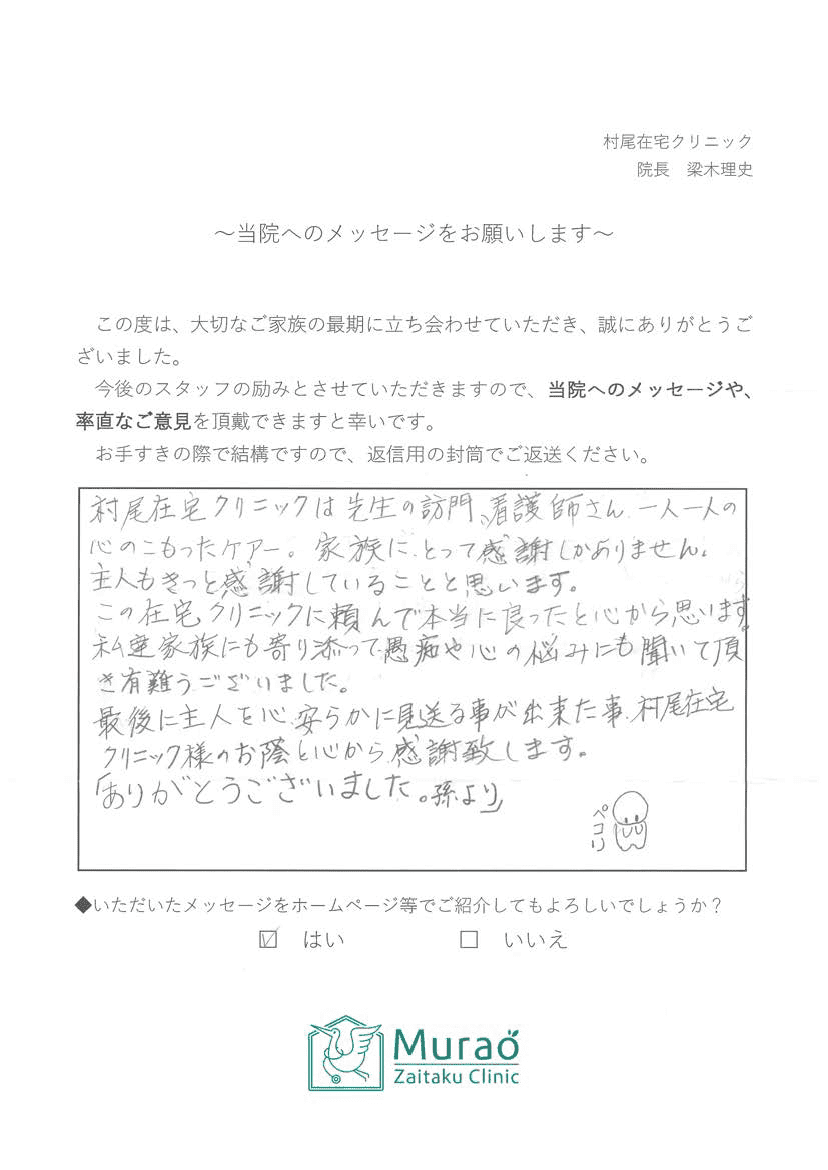 村尾在宅クリニック
院長　梁木理史
～当院へのメッセージをお願いします～
この度は、大切なご家族の最期に立ち会わせていただき、誠にありがとうご
ざいました。
今後のスタッフの励みとさせていただきますので、当院へのメッセージや、
率直なご意見を頂戴できますと幸いです。
お手すきの際で結構ですので、返信用の封筒でご返送ください。
村尾在宅クリニックは先生の訪問、看護師さん一人一人の
心のこもったケアー。家族にとって感謝しかありません。
主人もきっと感謝していることと思います。
この在宅クリニックに頼んで本当に良ったと心から思います。
私達家族にも寄り添って愚痴や心の悩みにも聞いて頂
き有難うございました。
最後に主人を心安らかに見送る事が出来た事、村尾在宅
クリニック様のお蔭と心から感謝致します。
「ありがとうございました。孫より」
ペコリ
◆いただいたメッセージをホームページ等でご紹介してもよろしいでしょうか？
☑　はい　　　☐　いいえ
Murao
Zaitaku Clinic